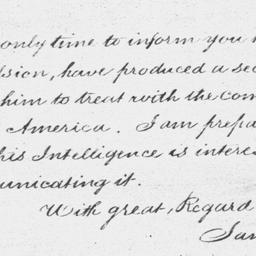 only time to inform you
sion, have produced a sec
him to treat with the com
America. I am prepa
his Intelligence is intere
unicating it.
With great, Regard